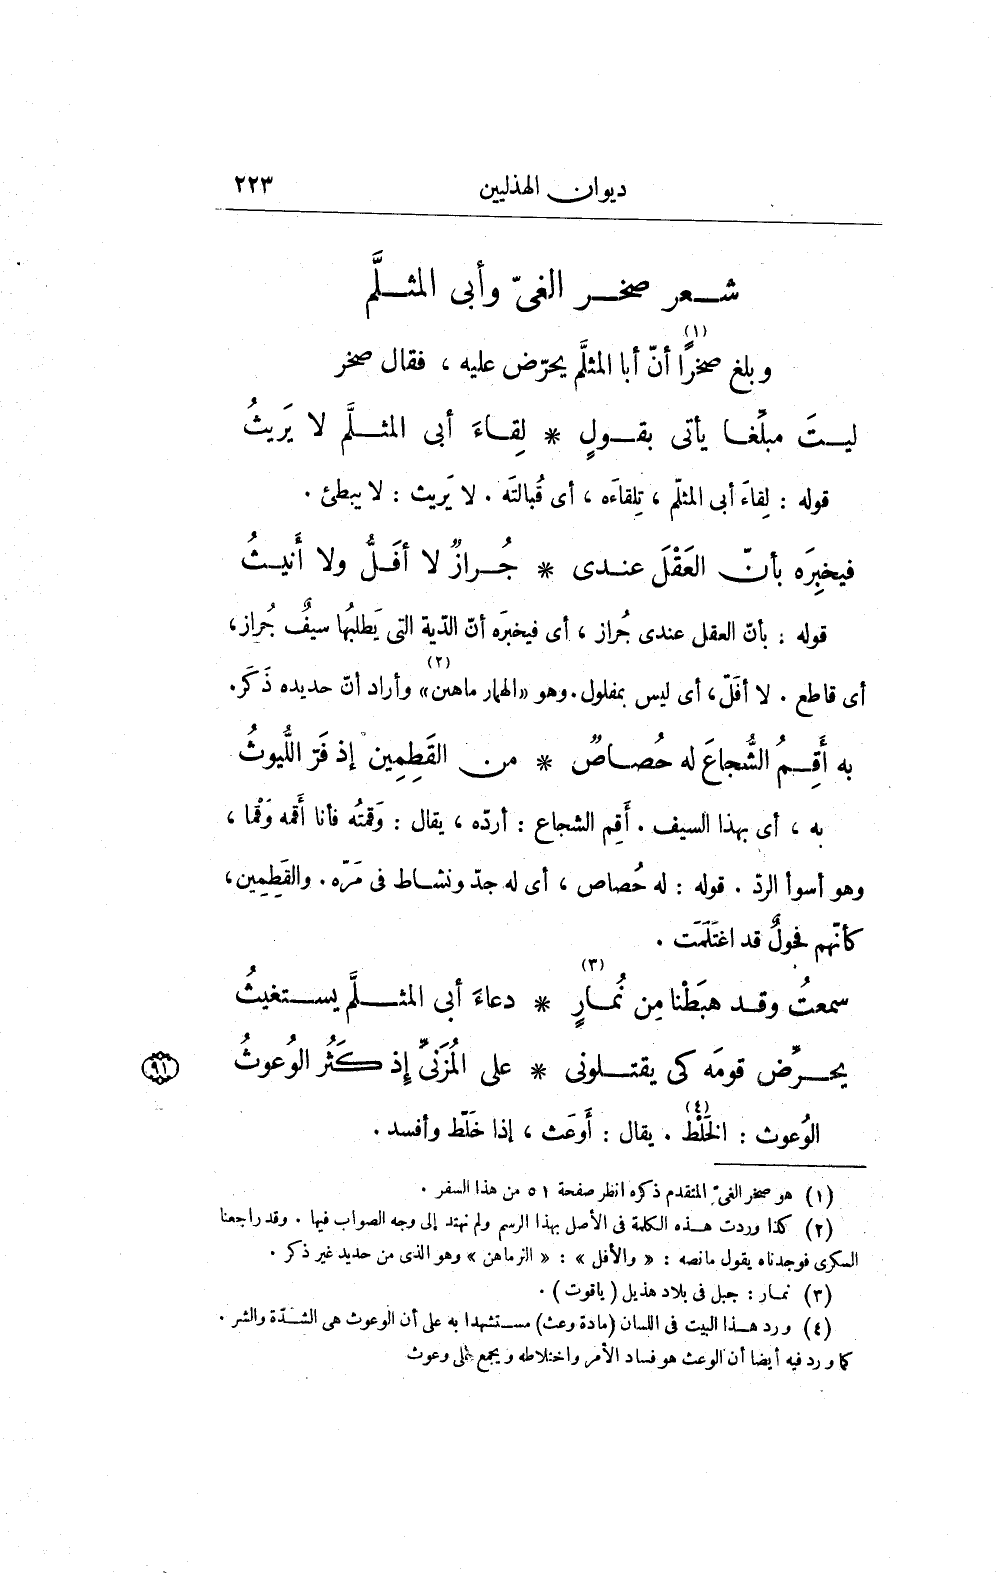 ديوان الهذليين ٢٢٣
شعر صخر الغىّ وأبى المثلَّم
وبلغ صخرًا (١) أنّ أبا المثلَّم يحرّض عليه ، فقال صخر
ليتَ مبلِّغا يأتى بقولٍ * لِقاءَ أبى المثلَّم لا يَريثُ
قوله : لِقاءَ أبى المثلّم ، تِلقاءَه ، أى قُبالتَه . لا يَريث : لا يبطئ .
فيخبِرَه بأنّ العَقْلَ عندى * جُرازٌ لا أفَلُّ ولا أَنيثُ
قوله : بأنّ العقل عندى جُراز ، أى فيخبرَه أنّ الدّية التى يَطلبُها سيفٌ جُراز،
أى قاطع . لا أفَلّ، أى ليس بمفلول. وهو «الهمار ماهىن» (٢) وأراد أنّ حديده ذَكَر.
به أَقِمُ الشُّجاعَ له حُصاصٌ * من القَطِمِين إذ فَرّ اللُّيوثُ
به ، أى بهذا السيف . أَقِم الشجاع : أردّه ، يقال : وَقمتُه فأنا أَقمه وَقْما ،
وهو أسوأ الردّ . قوله : له حُصاص ، أى له جدّ ونشاط فى مَرّه . والقَطِمِين،
كأنّهم فحولٌ قد اغتَلَمَت .
سمعتُ وقد هبَطْنا مِن نُمارٍ (٣) * دعاءَ أبى المثلَّم يستغيثُ
يحرِّض قومَه كى يقتلونى * على المُزَنىِّ إذ كَثُر الوُعوثُ
٩١
الوُعوث : الخَلْط (٤) . يقال : أَوعَث ، إذا خَلّط وأفسد .
(١) هو صخر الغىّ المتقدم ذكره انظر صفحة ٥١ من هذا السفر .
(٢) كذا وردت هذه الكلمة فى الأصل بهذا الرسم ولم نهتد إلى وجه الصواب فيها . وقد راجعنا
السكرى فوجدناه يقول مانصه : « والأفل » : « النرماهن » وهو الذى من حديد غير ذكر .
(٣) نمار : جبل فى بلاد هذيل (ياقوت) .
(٤) ورد هذا البيت فى اللسان (مادة وعث) مستشهدا به على أن الوعوث هى الشدّة والشر .
كما ورد فيه أيضا أن الوعث هو فساد الأمر واختلاطه ويجمع على وعوث